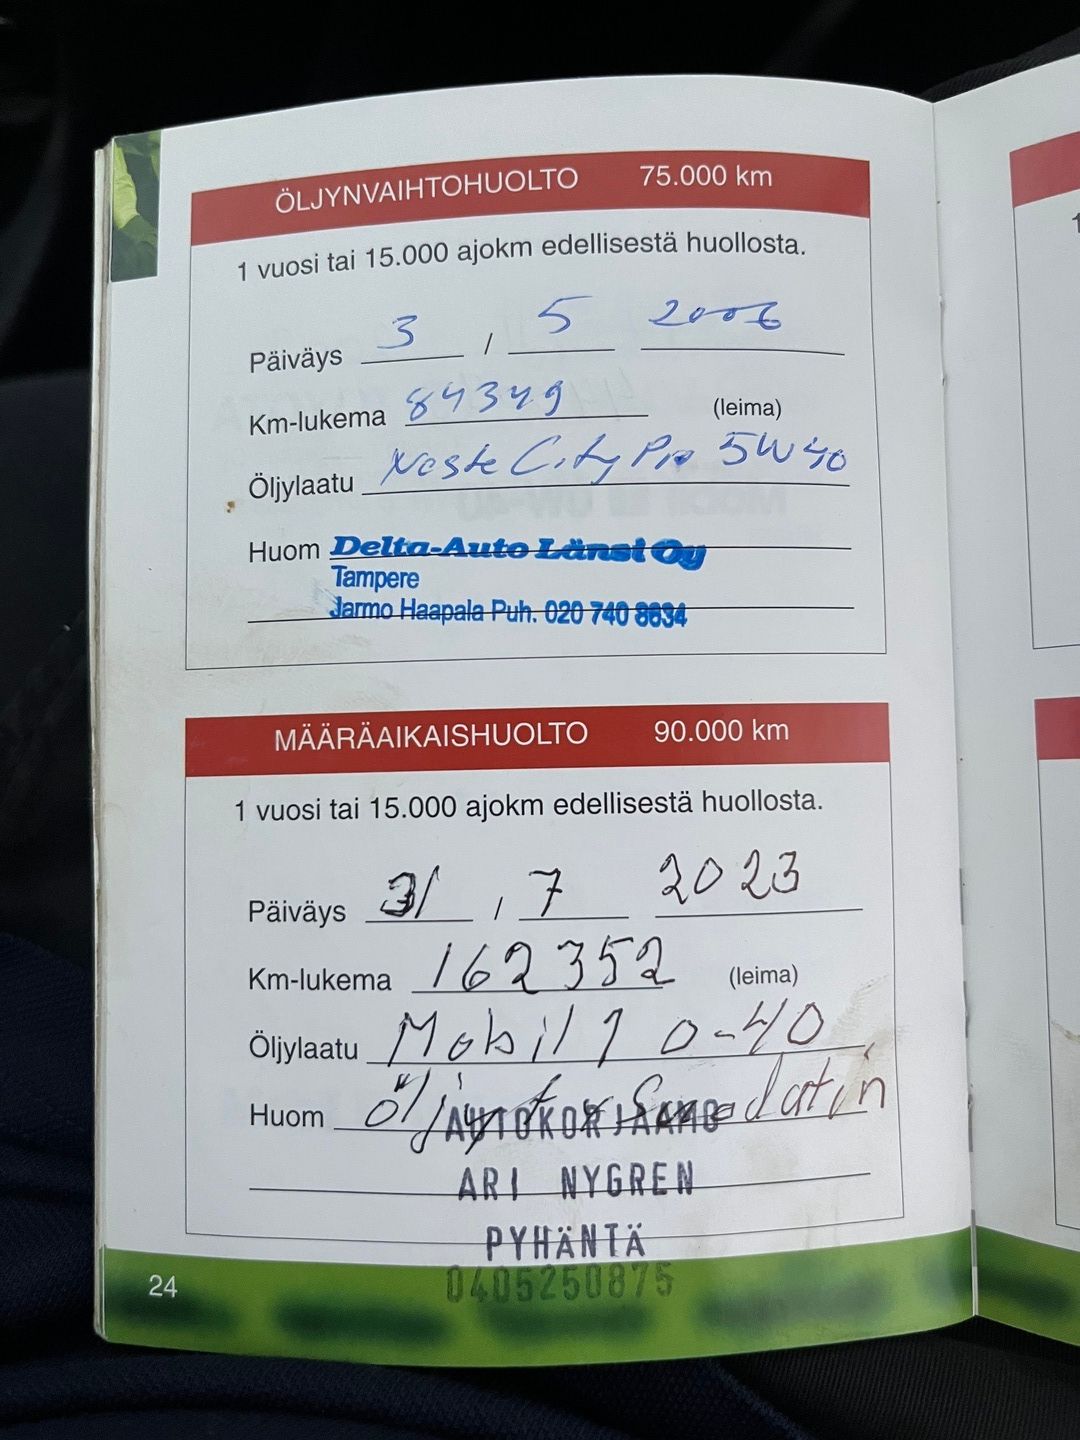 ÖLJYNVAIHTOHUOLTO 75.000 km
1 vuosi tai 15.000 ajokm edellisestä huollosta.
Päiväys 3 / 5 2006
Km-lukema 84349 (leima)
Öljylaatu Neste City Pro 5W40
Huom Delta-Auto Länsi Oy
Tampere
Jarmo Haapala Puh. 020 740 8634
MÄÄRÄAIKAISHUOLTO 90.000 km
1 vuosi tai 15.000 ajokm edellisestä huollosta.
Päiväys 31 / 7 2023
Km-lukema 162352 (leima)
Öljylaatu Mobil 1 0-40
Huom öljyt
AUTOKORJAAMO
ARI NYGREN
PYHÄNTÄ
0405250875
24